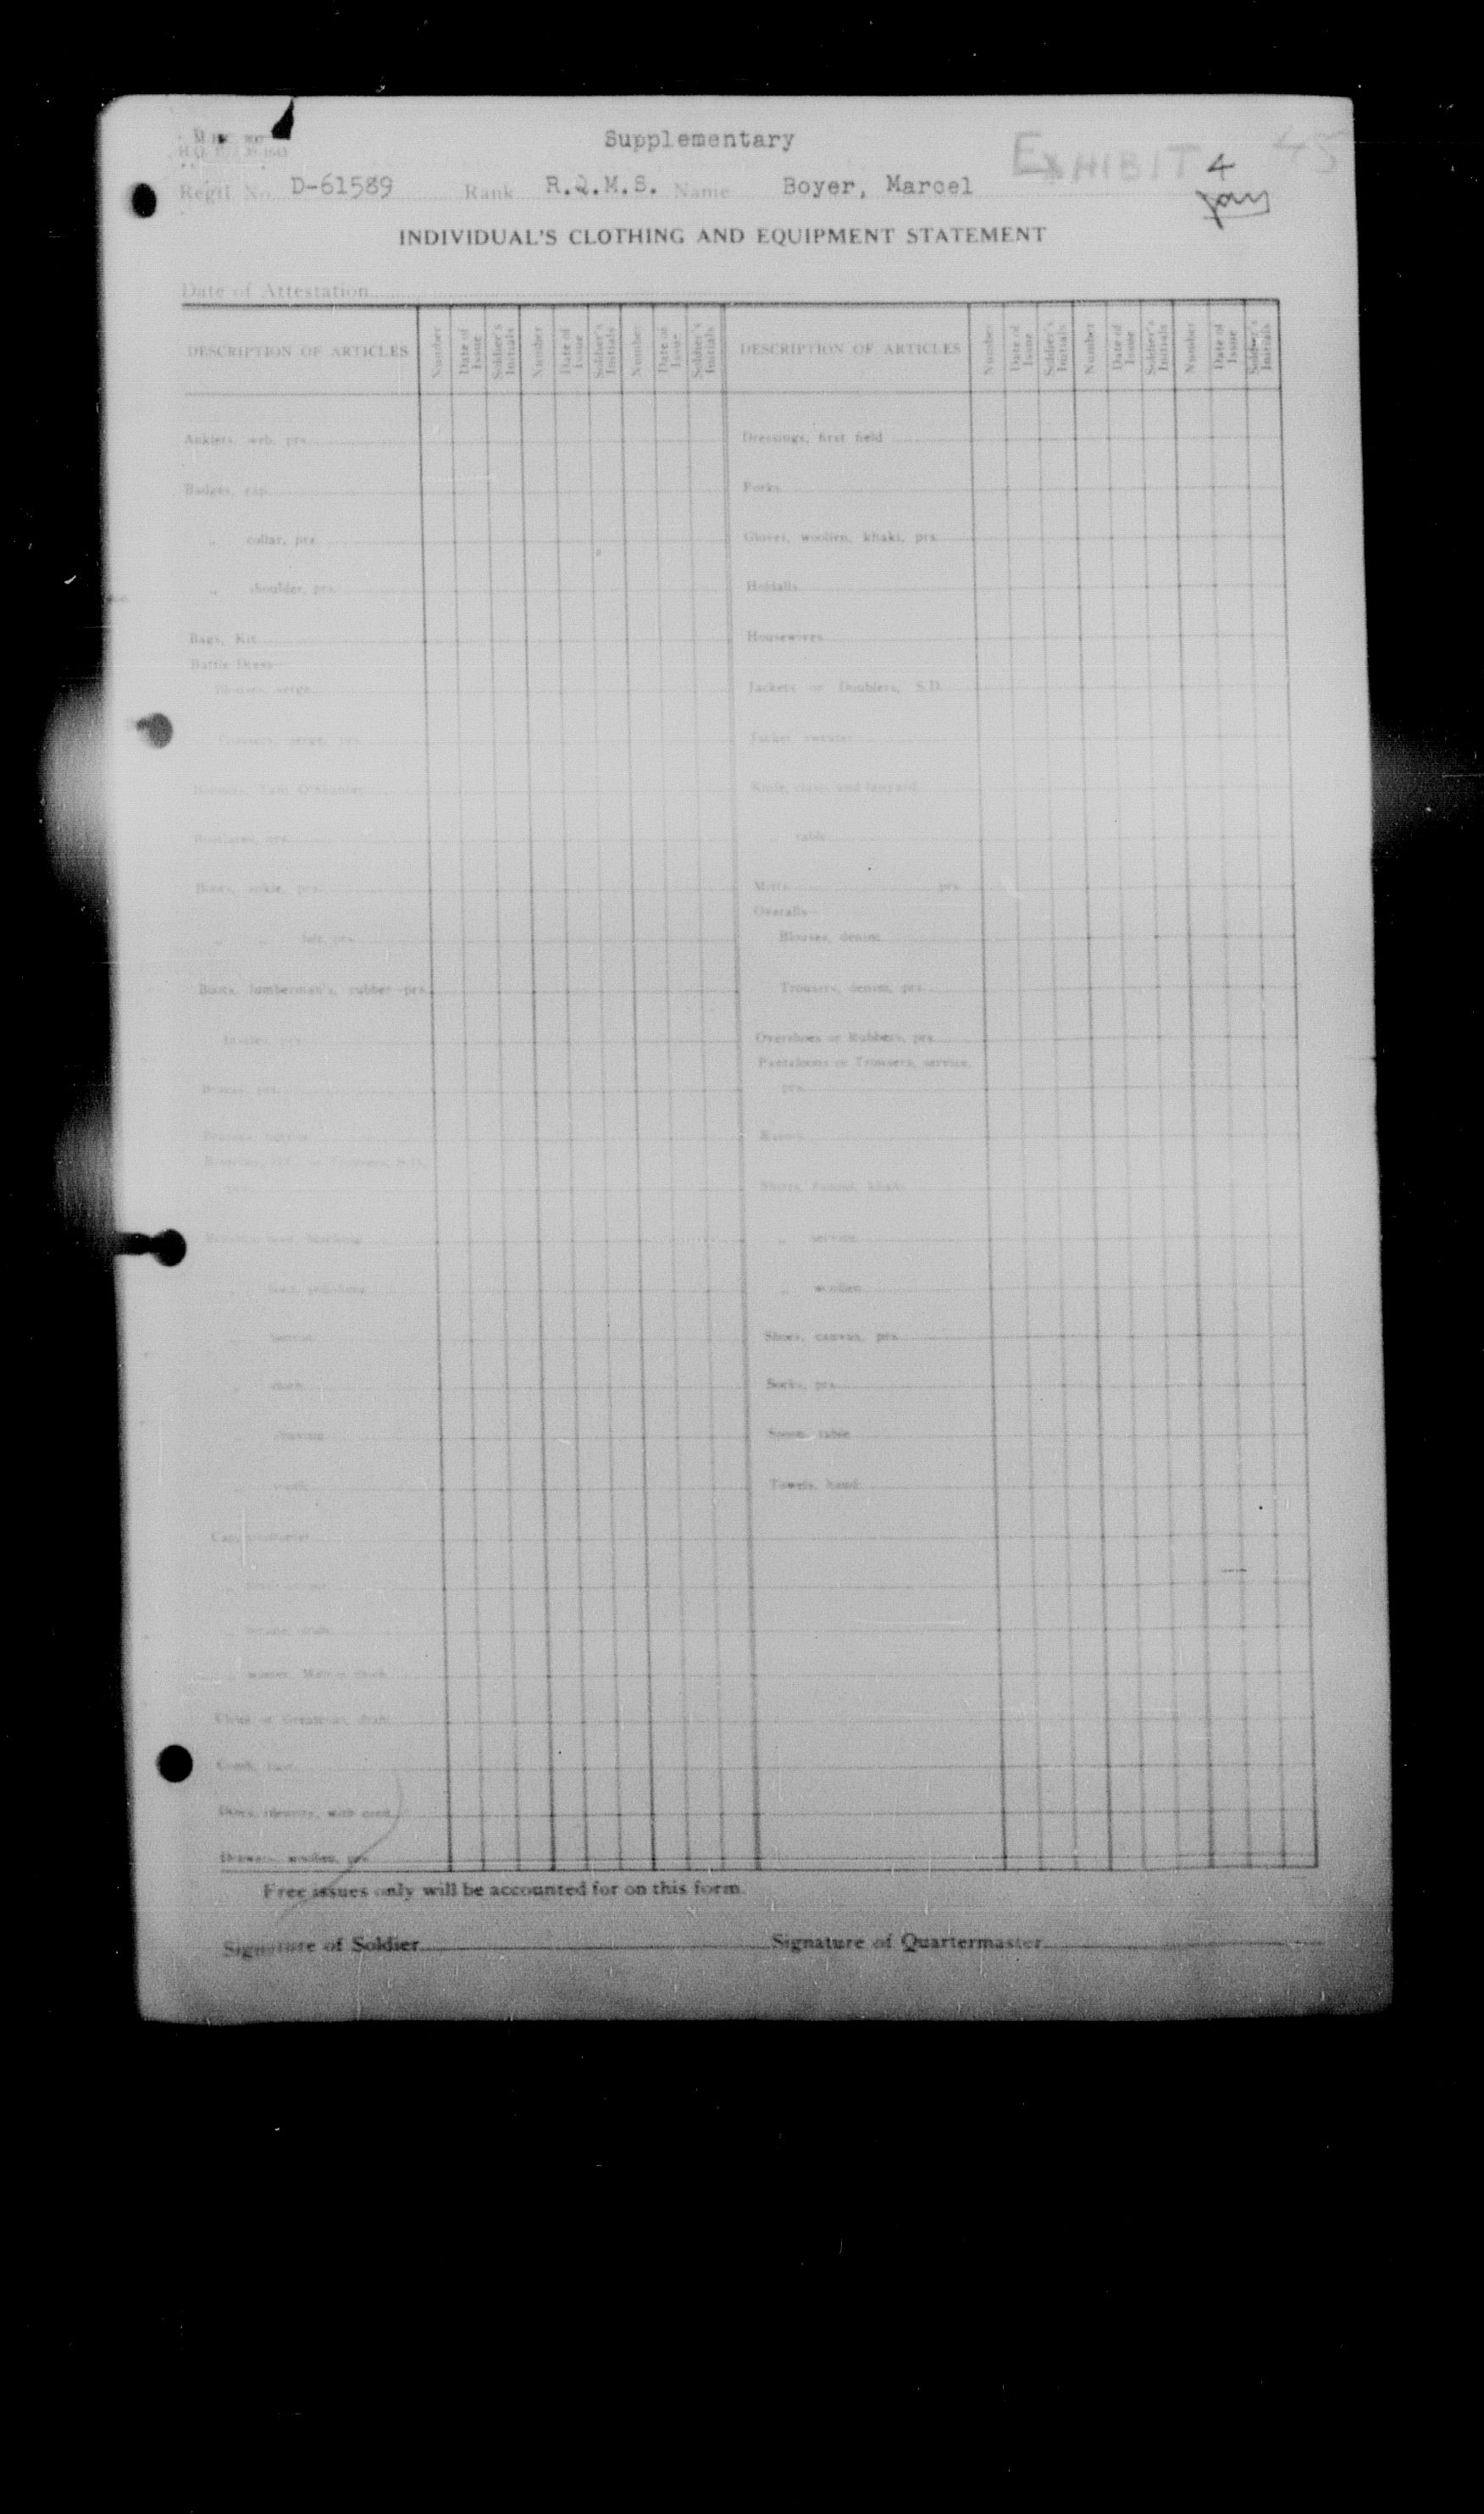 Supplementary
EXHIBIT 4 45
Regtl. No. D-61589 Rank R.Q.M.S. Name Boyer, Marcel
INDIVIDUAL'S CLOTHING AND EQUIPMENT STATEMENT
Date of Attestation
DESCRIPTION OF ARTICLES Number Date of Issue Soldier's Initials Number Date of Issue Soldier's Initials Number Date of Issue Soldier's Initials
Anklets, web, prs.
Badges, cap
„ collar, prs.
„ shoulder, prs.
Bags, Kit
Battle Dress—
Blouses, serge
Trousers, serge, prs.
Bonnets, Tam O'Shanter
Bootlaces, prs.
Boots, ankle, prs.
„ „ prs.
Boots, lumberman's, rubber prs.
Insoles, prs.
Braces, prs.
„ shaving
„ tooth
„ winter
Cloak or Greatcoat, drab
Comb, hair
Discs, identity, with cord
Drawers, woollen, prs.
DESCRIPTION OF ARTICLES Number Date of Issue Soldier's Initials Number Date of Issue Soldier's Initials Number Date of Issue Soldier's Initials
Dressings, first field
Forks
Gloves, woollen, khaki, prs.
Holdalls
Housewives
Jackets or Doublets, S.D.
Jacket, sweater
Knife, clasp, and lanyard
„ table
Mitts prs.
Overalls—
Blouses, denim
Trousers, denim, prs.
Overshoes or Rubbers, prs.
Pantaloons or Trousers, service,
prs.
Razors
Shirts, flannel, khaki
„ service
„ woollen
Shoes, canvas, prs.
Socks, prs.
Spoon, table
Towels, hand
Free issues only will be accounted for on this form.
Signature of Soldier Signature of Quartermaster